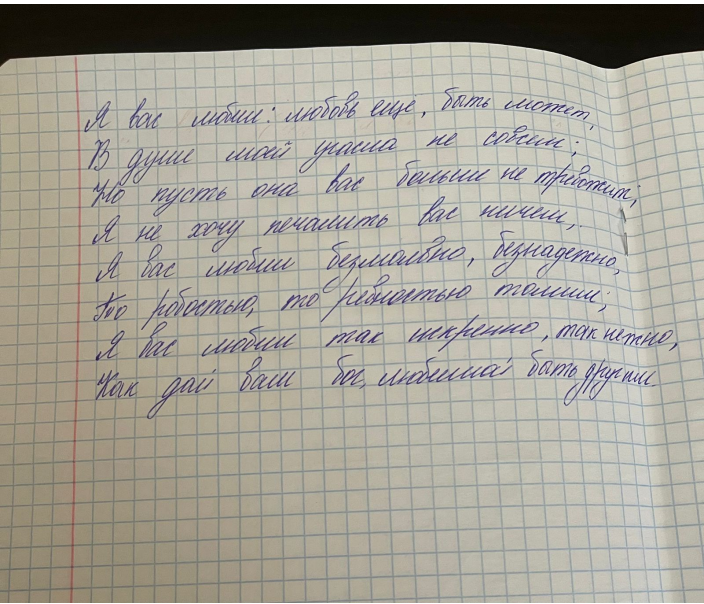 Я вас любил: любовь еще, быть может,
В душе моей угасла не совсем;
Но пусть она вас больше не тревожит;
Я не хочу печалить вас ничем.
Я вас любил безмолвно, безнадежно,
То робостью, то ревностью томим;
Я вас любил так искренно, так нежно,
Как дай вам бог, любимой быть другим